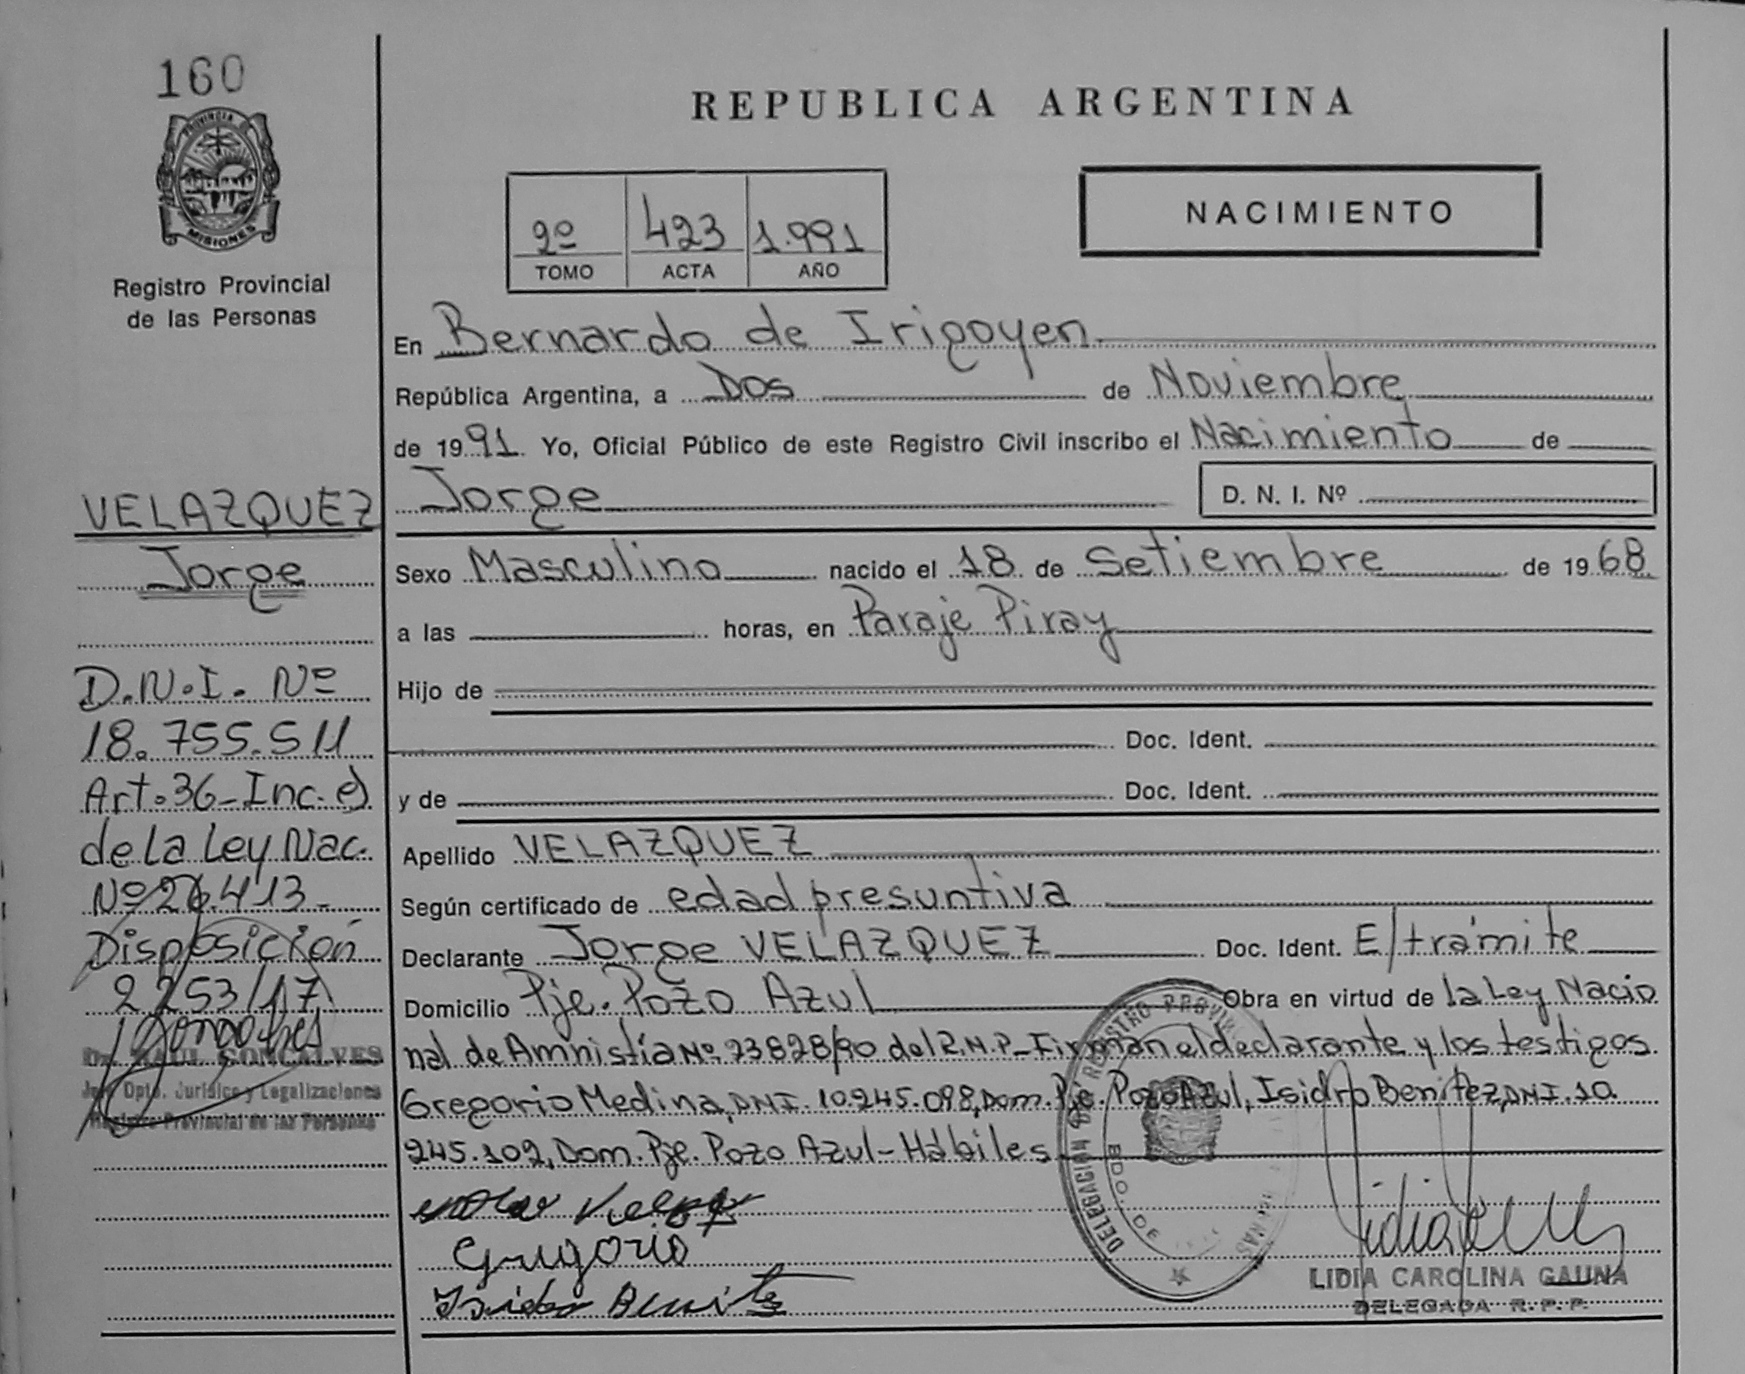 160
PROVINCIA DE
MISIONES
Registro Provincial
de las Personas
REPUBLICA ARGENTINA
2º 423 1.991
TOMO ACTA AÑO
NACIMIENTO
En Bernardo de Irigoyen
República Argentina, a Dos de Noviembre
de 1991 Yo, Oficial Público de este Registro Civil inscribo el Nacimiento de
Jorge D. N. I. Nº
Sexo Masculino nacido el 18 de Setiembre de 1968
a las horas, en Paraje Piray
Hijo de
Doc. Ident.
y de Doc. Ident.
Apellido VELAZQUEZ
Según certificado de edad presuntiva
Declarante Jorge VELAZQUEZ Doc. Ident. E/trámite
Domicilio Pje. Pozo Azul Obra en virtud de la Ley Nacio
nal de Amnistía Nº 23828/90 del R.N.P_Firman el declarante y los testigos
Gregorio Medina, DNI. 10.245.098, Dom. Pje. Pozo Azul, Isidro Benitez, DNI. 10.
245.102, Dom. Pje. Pozo Azul-Hábiles
Gregorio
Isidro Benitez
LIDIA CAROLINA GAUNA
DELEGADA R. P. P.
VELAZQUEZ
Jorge
D.N.I. Nº
18.755.511
Art.36-Inc. e)
de la Ley Nac.
Nº 26.413-
Disposición
2253/17
Dr. RAUL GONCALVES
Jefe Dpto. Jurídico y Legalizaciones
Registro Provincial de las Personas
DELEGACION REGISTRO
BDO. DE